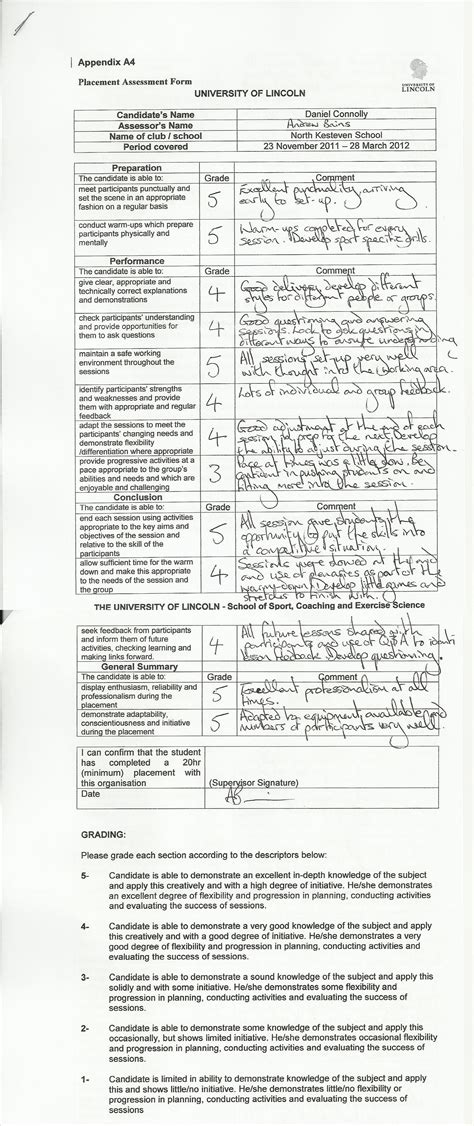 Appendix A4
Placement Assessment Form
UNIVERSITY OF LINCOLN
UNIVERSITY OF
LINCOLN
Candidate's Name Daniel Connolly
Assessor's Name Andrew Bains
Name of club / school North Kesteven School
Period covered 23 November 2011 – 28 March 2012
Preparation
The candidate is able to: Grade Comment
meet participants punctually and
set the scene in an appropriate
fashion on a regular basis
5
Excellent punctuality, arriving
early to set-up.
conduct warm-ups which prepare
participants physically and
mentally
5
Warm-ups completed for every
session. Develop sport specific drills.
Performance
The candidate is able to: Grade Comment
give clear, appropriate and
technically correct explanations
and demonstrations
4
Good delivery, develop different
styles for different people or groups.
check participants' understanding
and provide opportunities for
them to ask questions
4
Good questioning and answering
sessions. Look to ask questions in
different ways to ensure understanding
maintain a safe working
environment throughout the
sessions
5
All sessions set-up very well
with thought into the working area.
identify participants' strengths
and weaknesses and provide
them with appropriate and regular
feedback
4
Lots of individual and group feedback.
adapt the sessions to meet the
participants' changing needs and
demonstrate flexibility
/differentiation where appropriate
4
Good adjustment at the end of each
session to prep to the next. Develop
the ability to adjust during the session.
provide progressive activities at a
pace appropriate to the group's
abilities and needs and which are
enjoyable and challenging
3
Pace at times was a little slow. Be
confident in pushing students on and
fitting more into the session.
Conclusion
The candidate is able to: Grade Comment
end each session using activities
appropriate to the key aims and
objectives of the session and
relative to the skill of the
participants
5
All session gave students the
opportunity to put the skills into
a competitive situation.
allow sufficient time for the warm
down and make this appropriate
to the needs of the session and
the group
4
Sessions were slowed at the end
and use of as part of the
warm-down. Develop little games and
stretches to finish with.
THE UNIVERSITY OF LINCOLN - School of Sport, Coaching and Exercise Science
seek feedback from participants
and inform them of future
activities, checking learning and
making links forward.
4
All future lessons shared with
participants and use of Q+A to
lesson feedback. Develop questioning.
General Summary
The candidate is able to: Grade Comment
display enthusiasm, reliability and
professionalism during the
placement
5
Excellent professionalism at all
times.
demonstrate adaptability,
conscientiousness and initiative
during the placement
5
Adapted to equipment available and
numbers of participants very well.
I can confirm that the student
has completed a 20hr
(minimum) placement with
this organisation
(Supervisor Signature)
Date
GRADING:
Please grade each section according to the descriptors below:
5- Candidate is able to demonstrate an excellent in-depth knowledge of the subject
and apply this creatively and with a high degree of initiative. He/she demonstrates
an excellent degree of flexibility and progression in planning, conducting activities
and evaluating the success of sessions.
4- Candidate is able to demonstrate a very good knowledge of the subject and apply
this creatively and with a good degree of initiative. He/she demonstrates a very
good degree of flexibility and progression in planning, conducting activities and
evaluating the success of sessions.
3- Candidate is able to demonstrate a sound knowledge of the subject and apply this
solidly and with some initiative. He/she demonstrates some flexibility and
progression in planning, conducting activities and evaluating the success of
sessions.
2- Candidate is able to demonstrate some knowledge of the subject and apply this
occasionally, but shows limited initiative. He/she demonstrates occasional flexibility
and progression in planning, conducting activities and evaluating the success of
sessions.
1- Candidate is limited in ability to demonstrate knowledge of the subject and apply
this and shows little/no initiative. He/she demonstrates little/no flexibility or
progression in planning, conducting activities and evaluating the success of
sessions